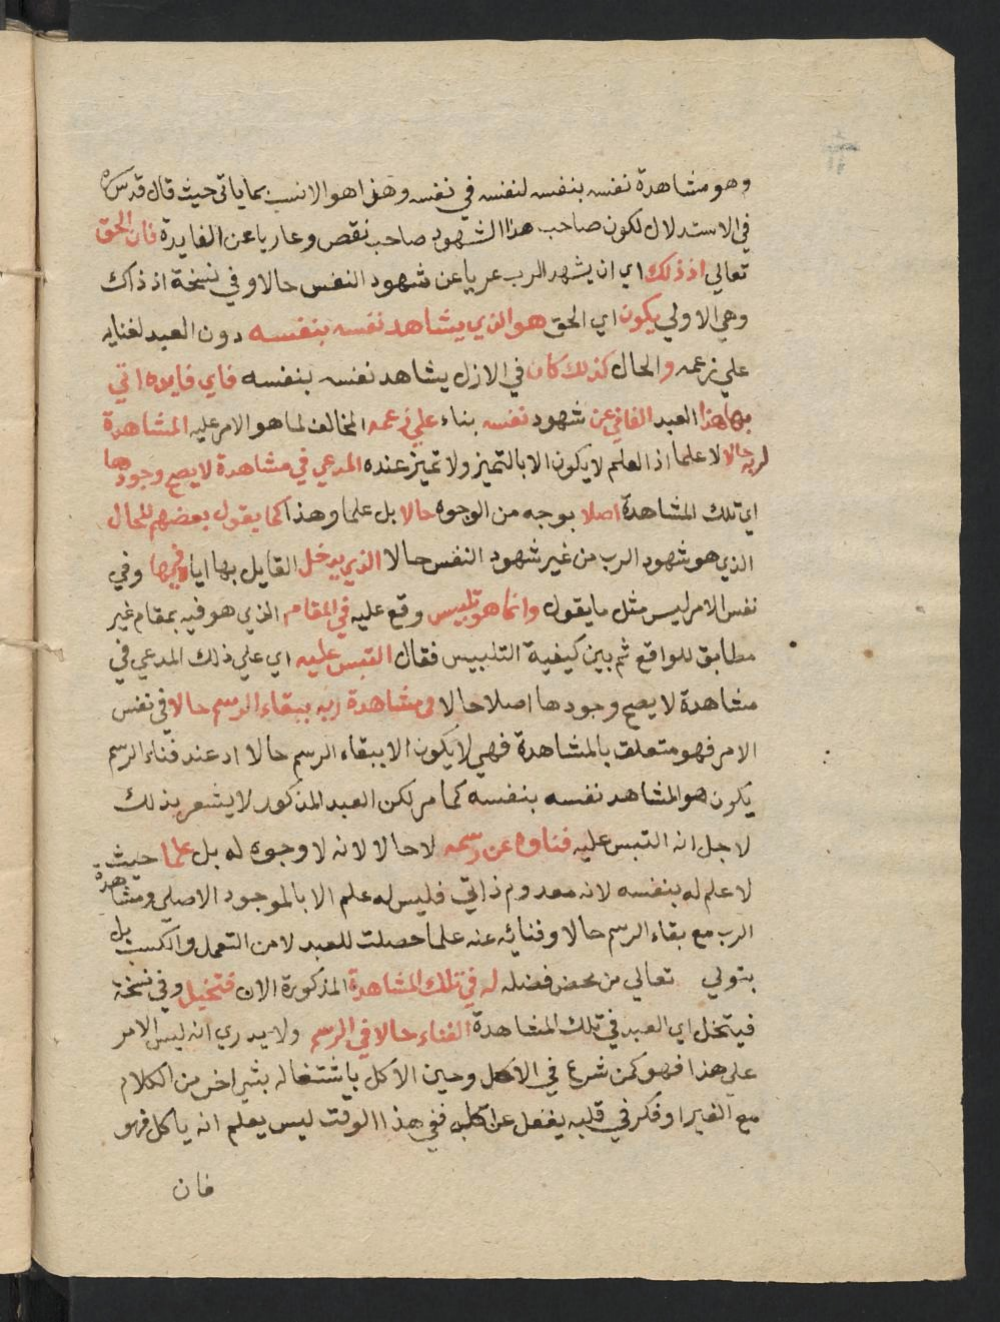 وهو مشاهدة نفسه بنفسه لنفسه في نفسه وهذا هو الانسب بما ياتي حيث قال قدس سره
في الاستدلال لكون صاحب هذا الشهود صاحب نقص وعاريا عن الفايدة فان الحق
تعالي اذ ذلك اي ان يشهد الرب عريا عن شهود النفس حالا وفي نسخة اذ ذاك
وهي الاولي يكون اي الحق هو الذي يشاهد نفسه بنفسه دون العبد لفنايه
علي زعمه والحال كذلك كان في الازل يشاهد نفسه بنفسه فاي فايدة اتي
بها هذا العبد الفاني عن شهود نفسه بناء علي زعمه المخالف لما هو الامر عليه المشاهدة
لربه حالا لا علما اذ العلم لا يكون الا بالتميز ولا تميز عنده المدعي في مشاهدة لا يصح وجودها
اي تلك المشاهدة اصلا بوجه من الوجوه حالا بل علما وهذا كما يقول بعضهم للحال
الذي هو شهود الرب من غير شهود النفس حالا الذي يدخل القايل بها اياه فيها وفي
نفس الامر ليس مثل ما يقول وانما هو تلبيس وقع عليه في المقام الذي هو فيه بمقام غير
مطابق للواقع ثم بين كيفية التلبيس فقال التبس عليه اي علي ذلك المدعي في
مشاهدة لا يصح وجودها اصلا حالا مشاهدة ربه ببقاء الرسم حالا في نفس
الامر فهو متعلق بالمشاهدة فهي لا يكون الا ببقاء الرسم حالا اذ عند فناء الرسم
يكون هو المشاهد نفسه بنفسه كما مر لكن العبد المذكور لا يشعر بذلك
لاجل انه التبس عليه فناوه عن رسمه لا حالا لانه لا وجوه له بل علما حيث
لا علم له بنفسه لانه معدوم ذاتي فليس له علم الا بالموجود الاصلي ومشاهدة
الرب مع بقاء الرسم حالا وفنائه عنه علما حصلت للعبد لا من التعمل والكسب بل
بتولي تعالي من محض فضله له في تلك المشاهدة المذكورة الان فتخيل وفي نسخة
فيتخل اي العبد في تلك المشاهدة الفناء حالا في الرسم ولا يدري انه ليس الامر
علي هذا فهو كمن شرع في الاكل وحين الاكل باشتغاله بشئ اخر من الكلام
مع الغير او فكر في قلبه يغفل عن اكله ففي هذا الوقت ليس يعلم انه ياكل فهو
فان